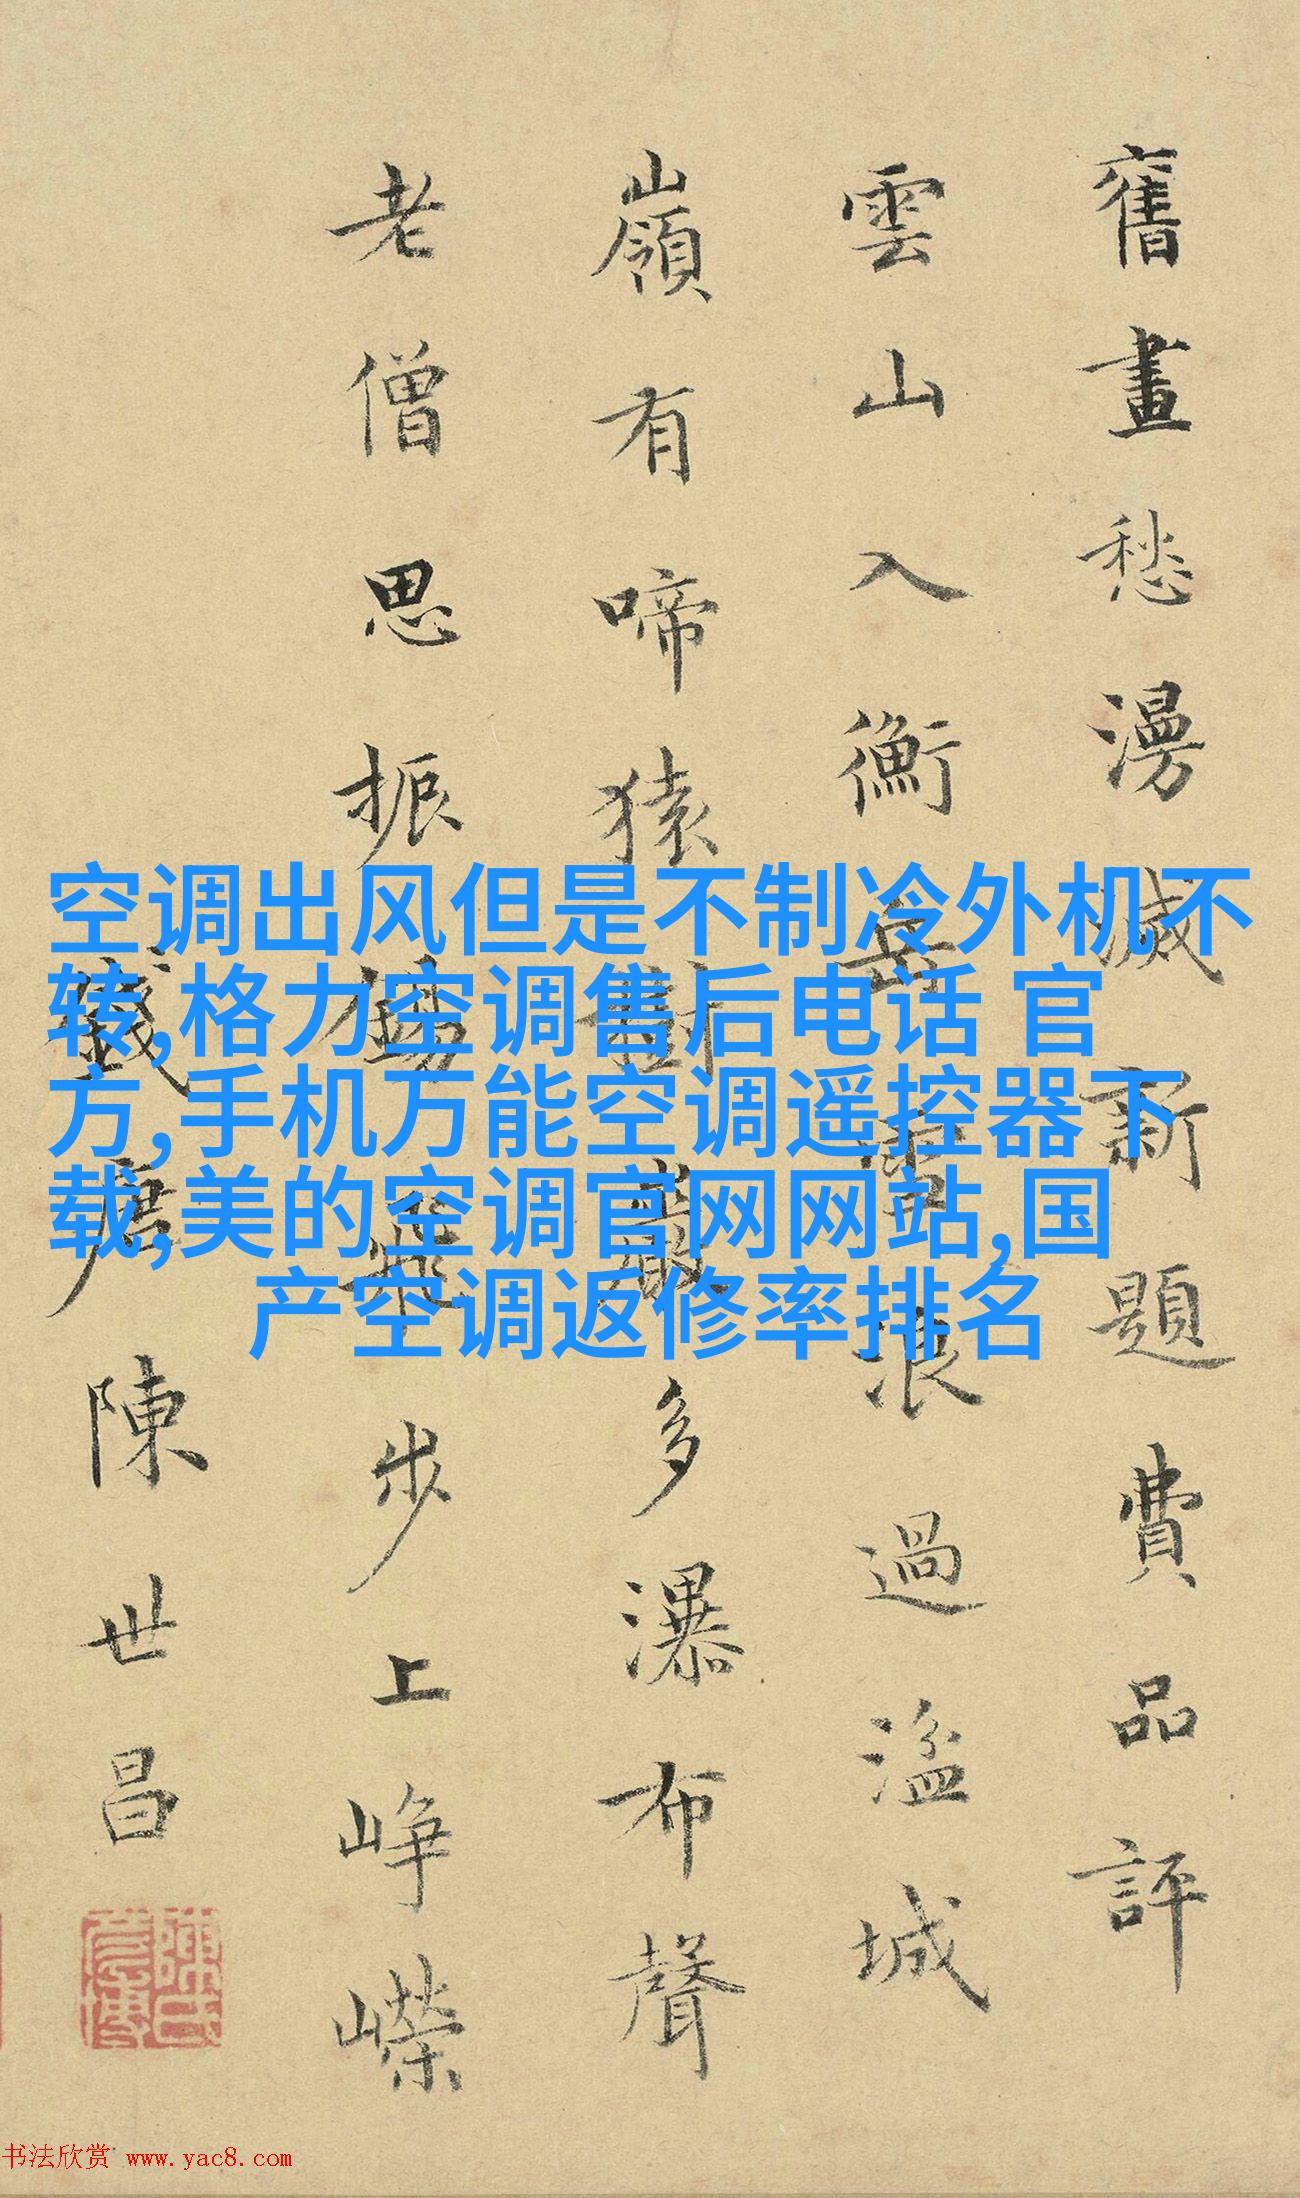 舊畫愁漫滅新題費品評
雲山入衡岳雪浪過湓城
嶺有啼猿樹巖多瀑布聲
老僧思振錫飛步上崢嶸
錢唐陳世昌
空调出风但是不制冷外机不
转,格力空调售后电话 官
方,手机万能空调遥控器下
载,美的空调官网网站,国
产空调返修率排名
书法欣赏 www.yac8.com